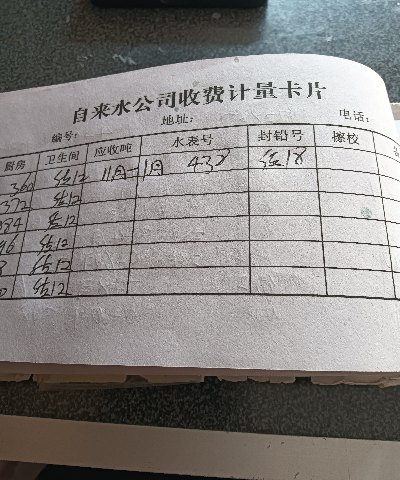 自来水公司收费计量卡片
编号： 地址： 电话：
厨房 卫生间 应收吨 水表号 封铅号 擦校
360 结12 11月-1月 438 结18
372 结12
384 结12
96 结12
8 结12
结12